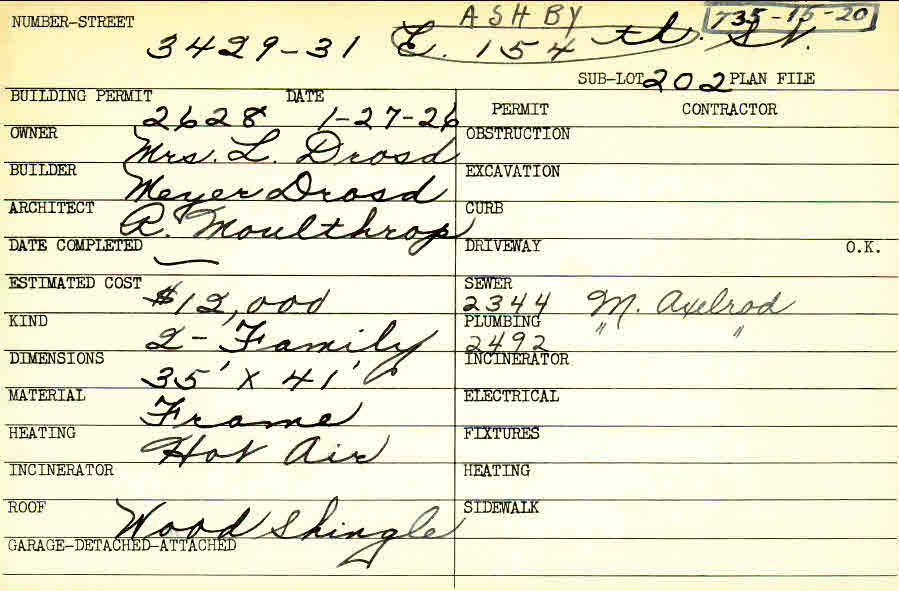 NUMBER-STREET ASHBY 735-15-20
3429-31 E. 154 th. St.
SUB-LOT 202 PLAN FILE
BUILDING PERMIT DATE PERMIT CONTRACTOR
2628 1-27-26
OWNER OBSTRUCTION
Mrs. L. Drosd
BUILDER EXCAVATION
Meyer Drosd
ARCHITECT CURB
A. Moulthrop
DATE COMPLETED DRIVEWAY O.K.
—
ESTIMATED COST SEWER
$12,000 2344 M. Axelrod
KIND PLUMBING " "
2-Family 2492
DIMENSIONS INCINERATOR
35' X 41'
MATERIAL ELECTRICAL
Frame
HEATING FIXTURES
Hot Air
INCINERATOR HEATING
ROOF SIDEWALK
Wood Shingle
GARAGE-DETACHED-ATTACHED